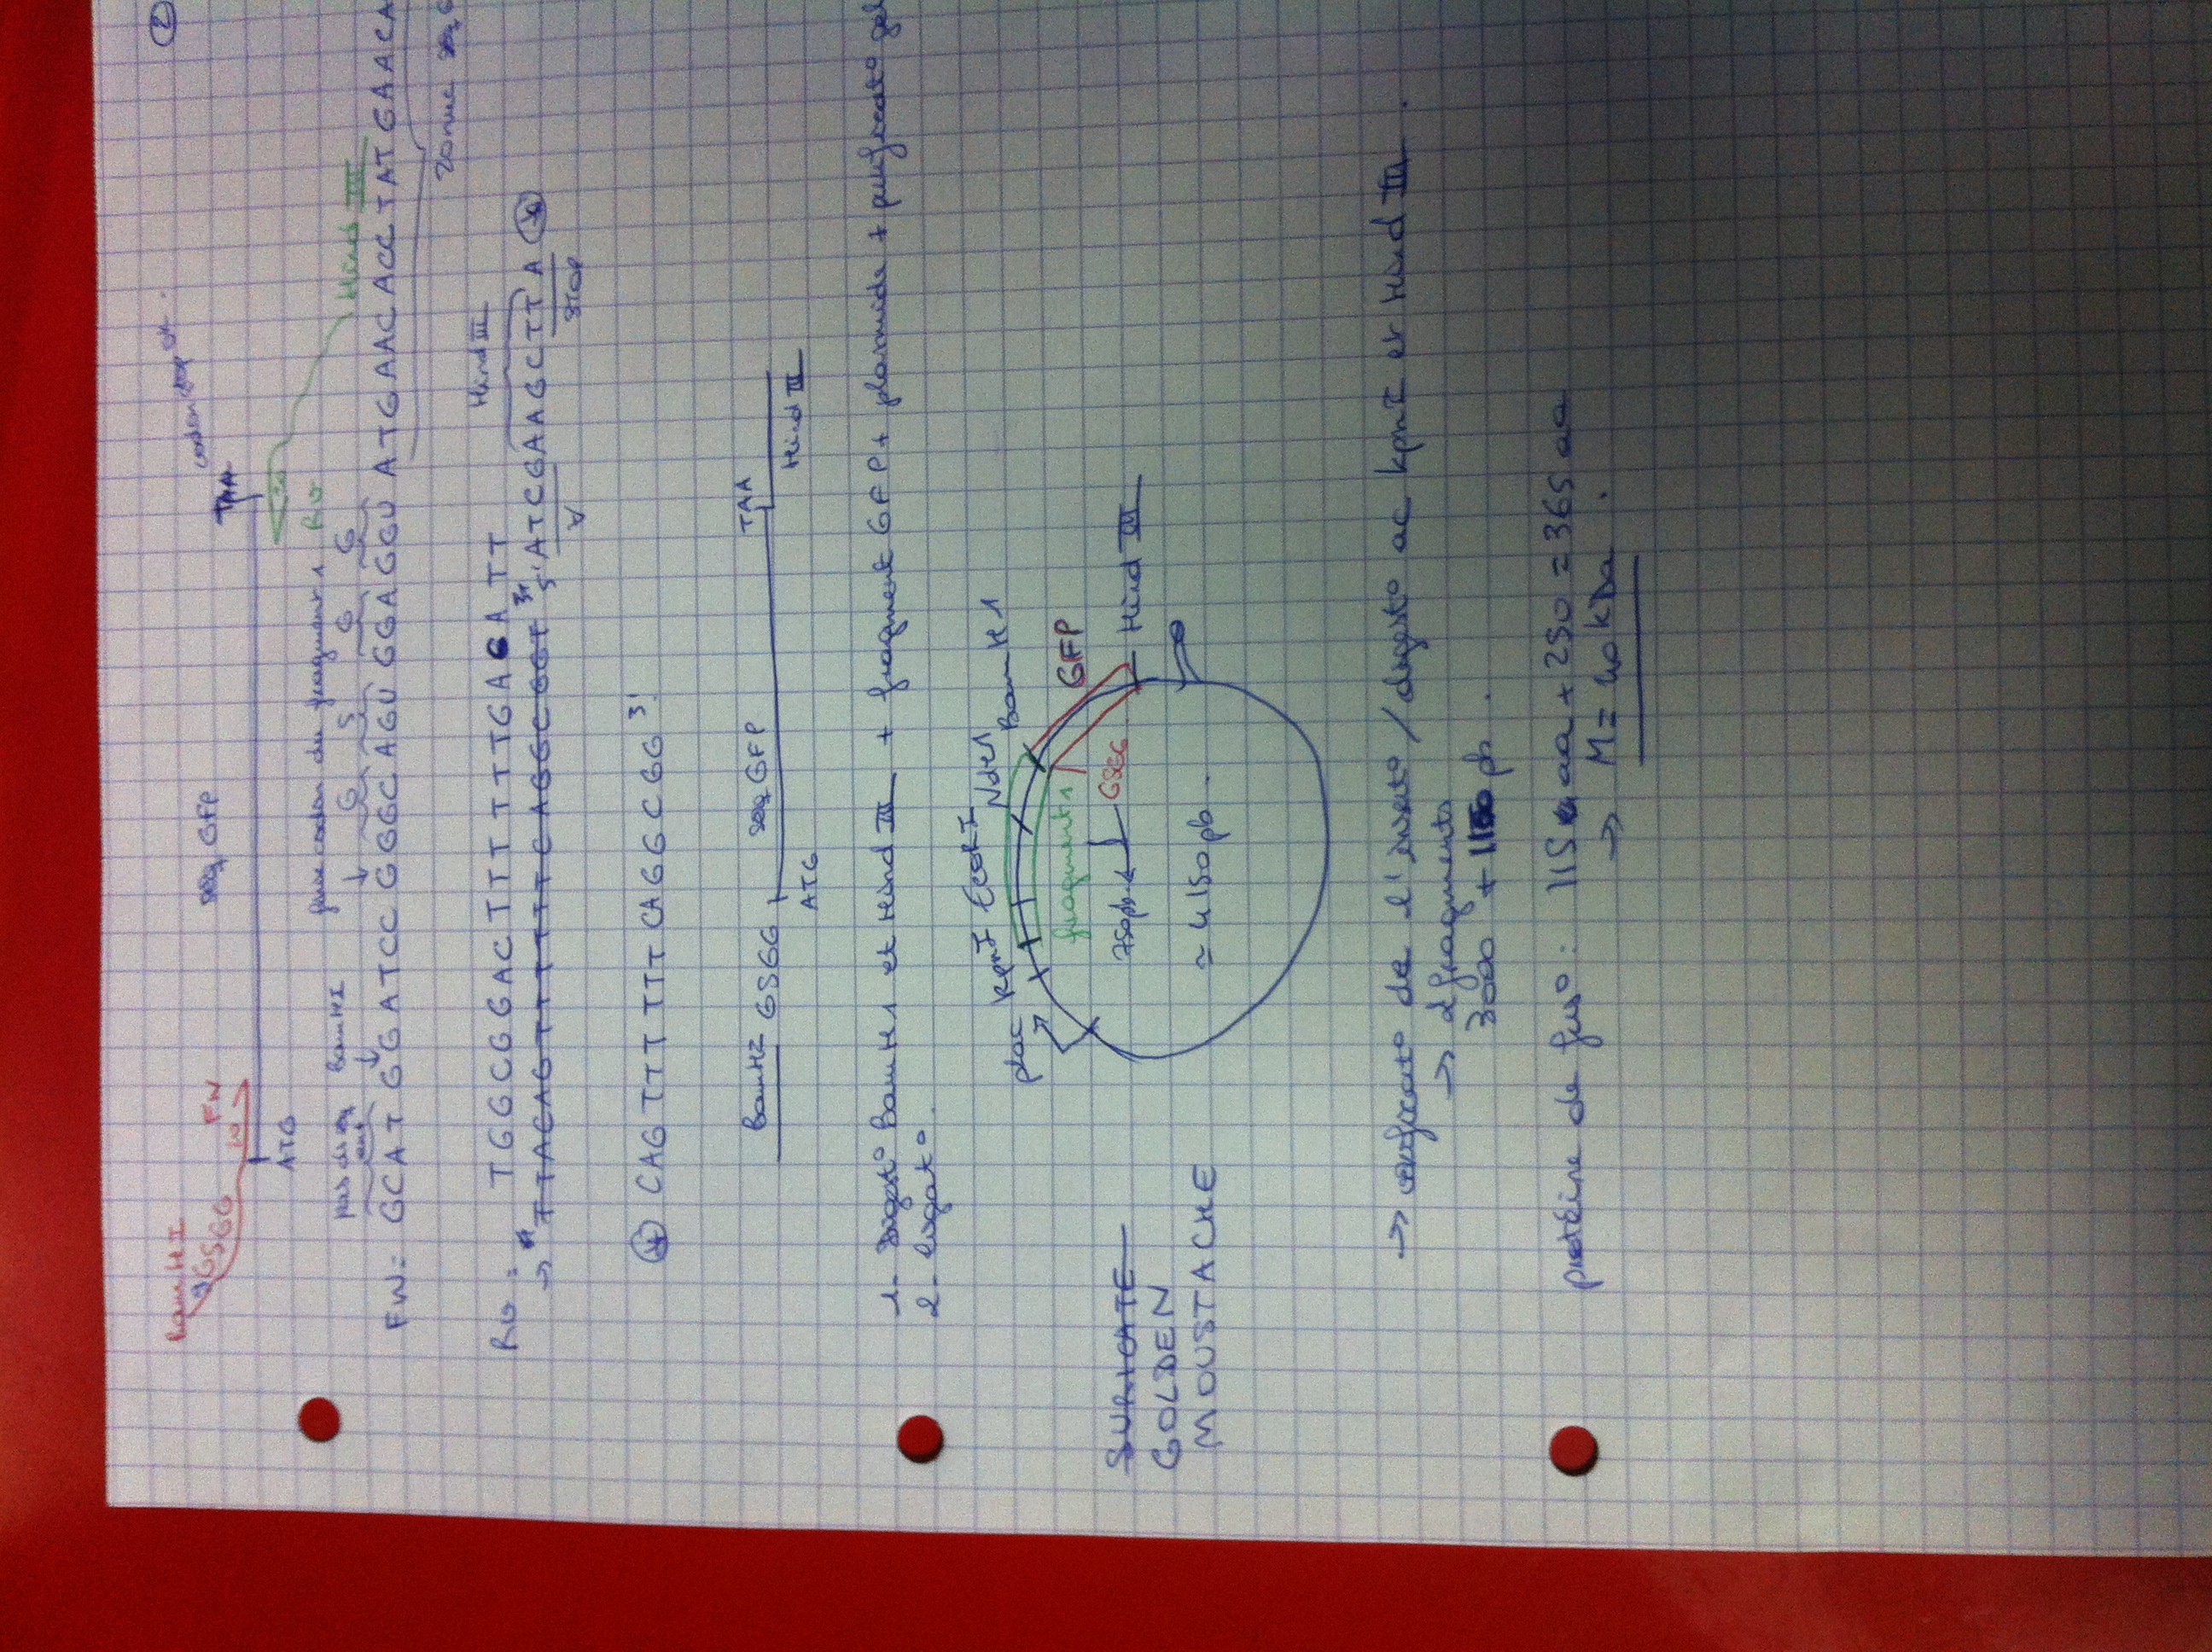 2
BamHI
GSGG
FW
seq GFP
TAA
codon stop OK.
ATG
Rv
Hind III
BamHI
codon du fragment 1
G S G G
FW = GCAT GGATCC G GGC AGU GGA GGU ATGAAC ACC TAT GAACA
20 nuc seq
Rv = TGGCGGACTTTTTTTGAGATT
Hind III
→ TTACAGTTTTTTTCAGGCGGT 3' 5' ATCGAAGCTTA
STOP
CAGTTTTTTTCAGGCGG 3'
BamHI GSGG seq GFP TAA
ATG Hind III
1- Digest° BamH1 et Hind III + fragment GFP + plasmide + purificat° gel
2- Ligat°.
plac KpnI EcoRI Nde1 BamH1
fragment 1
GFP
750pb GSGG
Hind III
SURICATE
GOLDEN
MOUSTACHE
≃ 4150 pb.
→ vérificat° de l'insert° / digest° ac KpnI et Hind III.
→ 2 fragments
3000 + 1150 pb.
protéine de fus° : 115 aa + 250 = 365 aa
→ M = 40 kDa.